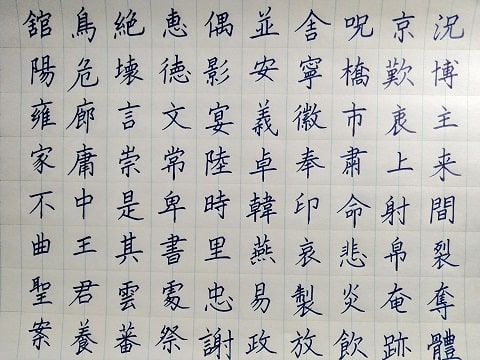 況博主来間裂奪體
京歎衷上射帛奄跡
呪橋市肅命悲炎飲
舍寧徽奉印哀製放
並安義卓韓燕易政
偶影宴陸時里忠謝
恵徳文常卑書處祭
絶壞言崇是其雲蕃
鳥危廊庸中王君養
舘陽雍家不曲聖案